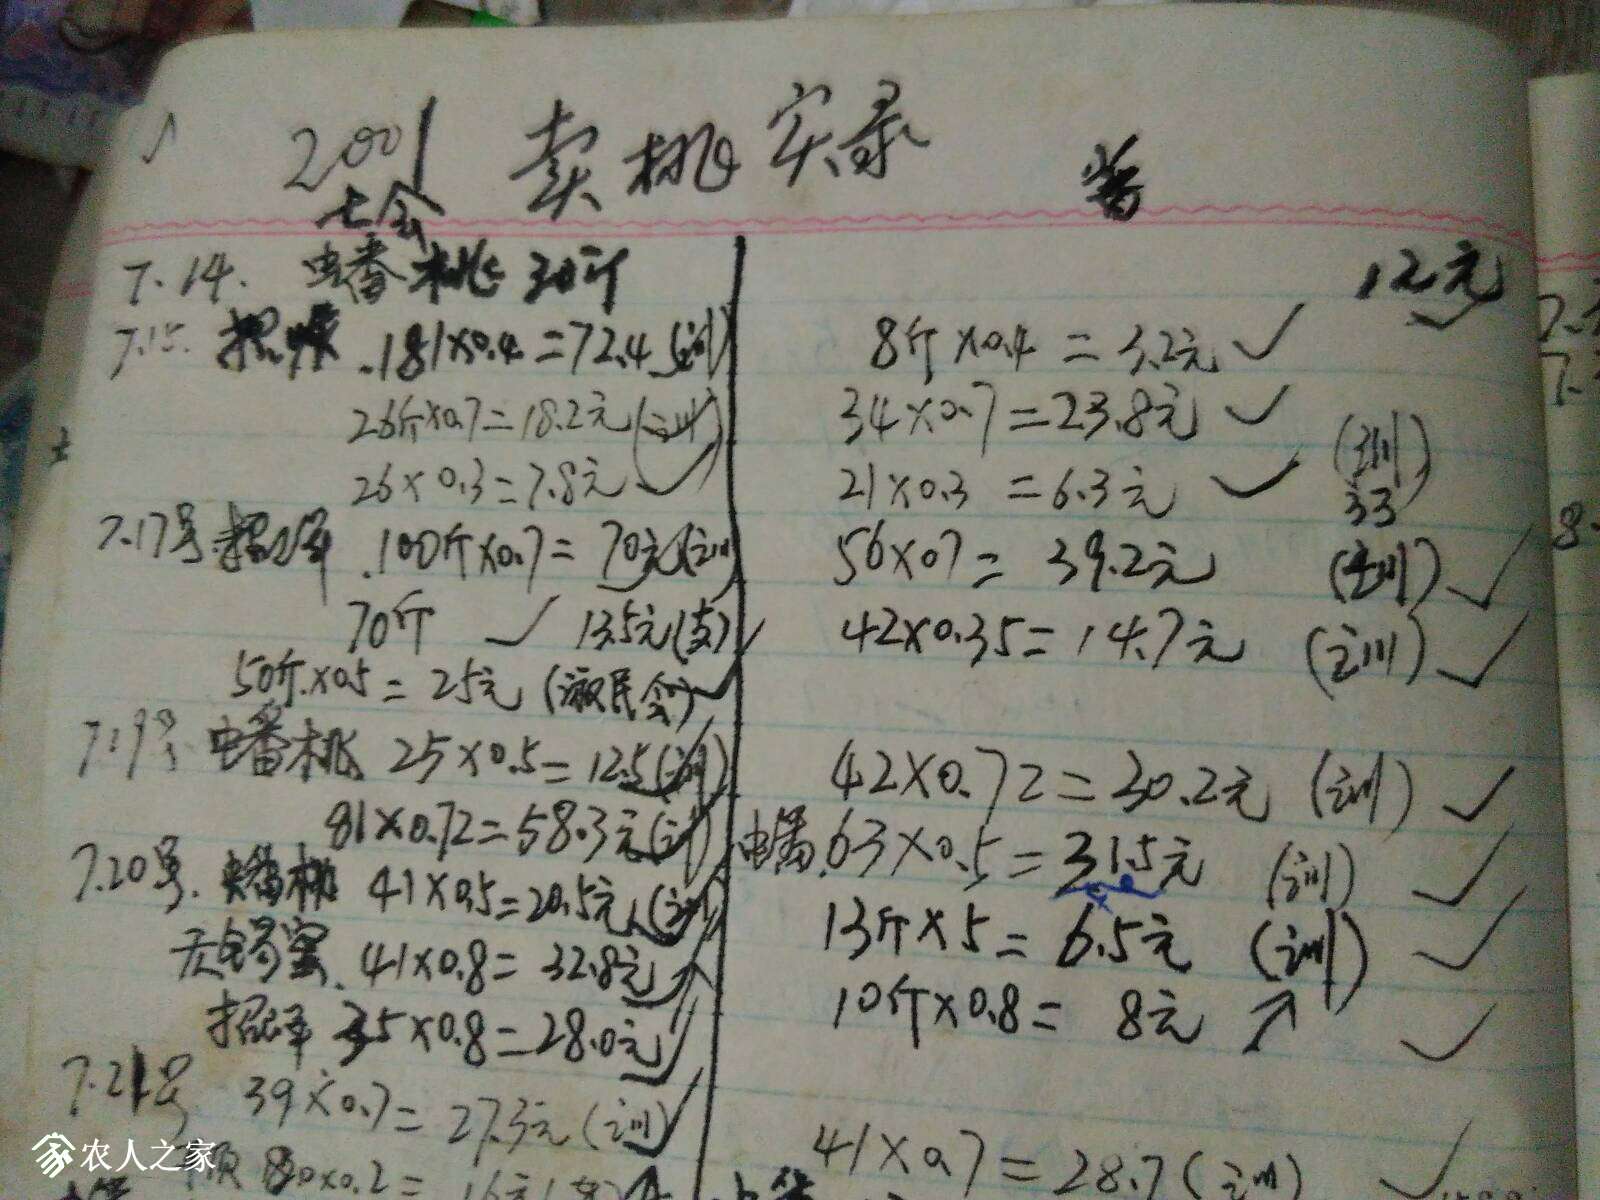 2001 卖桃实录
7.14. 蟠桃 30斤 12元
181×0.4=72.4 8斤×0.4=3.2元
26斤×0.7=18.2元 34×0.7=23.8元
26×0.3=7.8元 21×0.3=6.3元
33
7.17号 100斤×0.7=70元 56×07=39.2元
70斤 13.5元(支) 42×0.35=14.7元
50斤×05=25元
7.19号 蟠桃 25×0.5=12.5 42×0.72=30.2元
81×0.72=58.3元 蟠 63×0.5=31.5元
7.20号 蟠桃 41×0.5=20.5元 13斤×5=6.5元
无锡蜜 41×0.8=32.8元 10斤×0.8=8元
35×0.8=28.0元
7.21号 39×0.7=27.3元 41×0.7=28.7
80×0.2=16元
农人之家